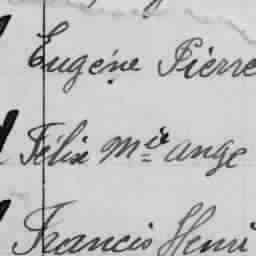 Eugène Pierre
Félix Mie ange
Francis Henri